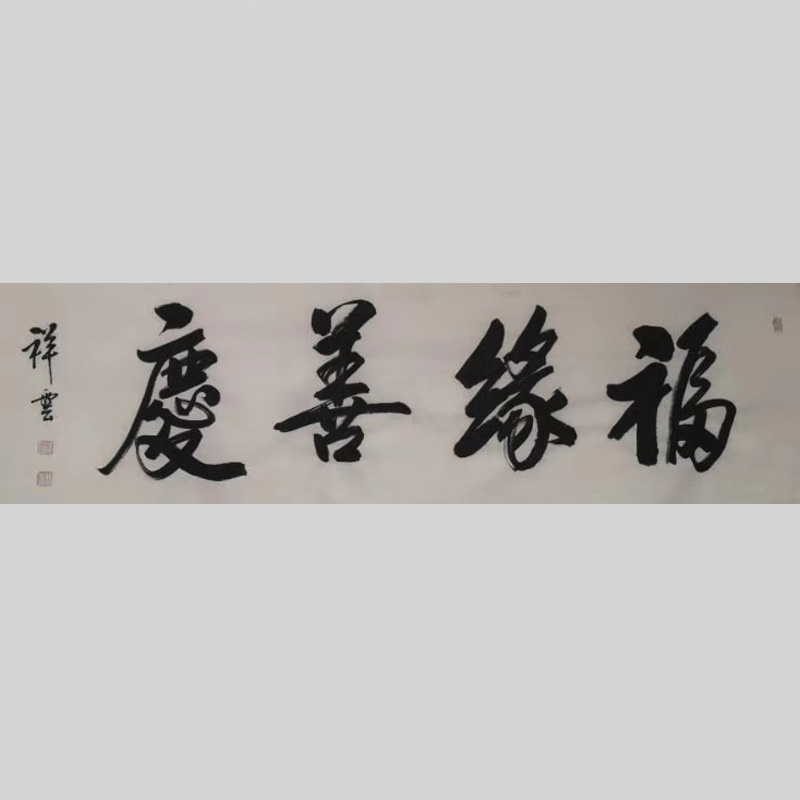 福緣善慶
祥雲